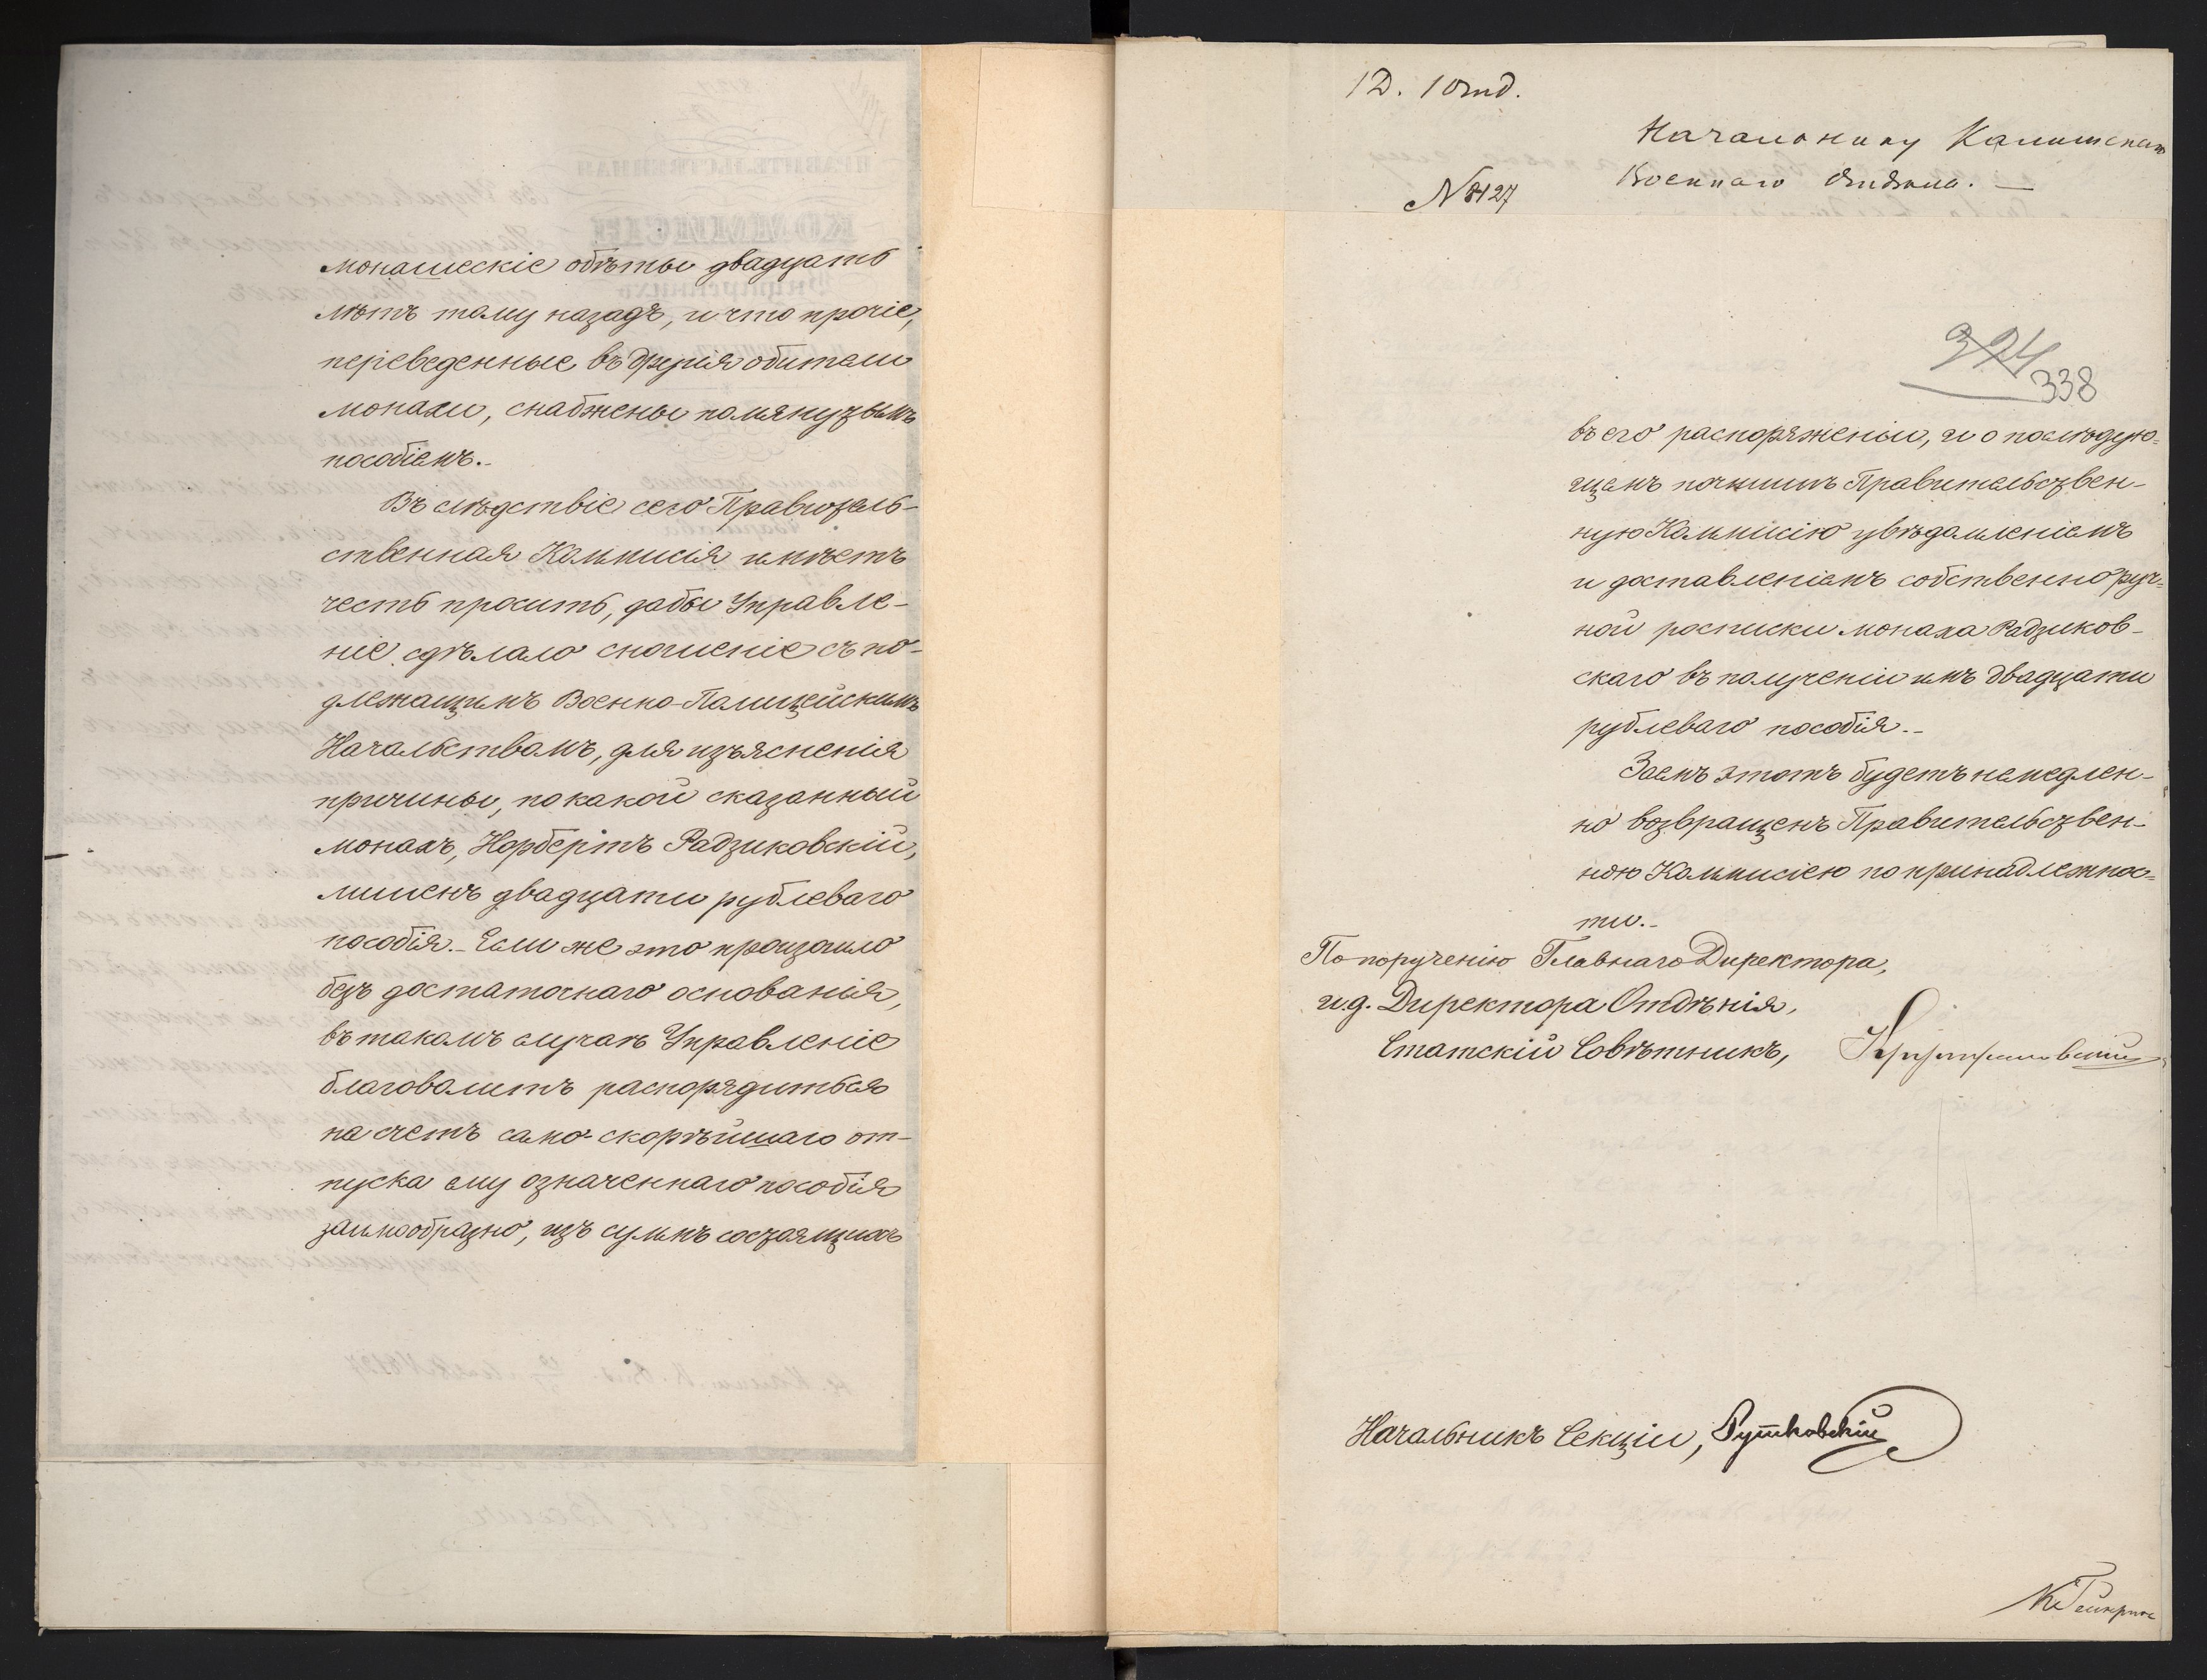 монашескіе обѣты двадцать
лѣтъ тому назадъ, и что прочіе,
переведенные въ другія обители
монахи, снабжены помянутымъ
пособіемъ.-
Въ слѣдствіе сего Правитель-
ственная Коммисія имѣетъ
честь просить, дабы Управле-
ніе сдѣлало сношеніе съ по-
длежащимъ Военно-Полицейскимъ
Начальствомъ, для изъясненія
причины, по какой сказанный
монахъ, Норбертъ Радзиковскій,
лишенъ двадцати рублеваго
пособія.- Если же это произошло
безъ достаточнаго основанія,
въ такомъ случаѣ Управленіе
благоволитъ распорядиться
на счетъ само-скорѣйшаго от-
пуска ему означеннаго пособія
заимообразно, изъ суммъ состоящихъ
1 Д. 1 Отд.
Начальнику Калишскаго
Военнаго Отдѣла. —
№ 8127
324
338
въ его распоряженіи, и о послѣдую=
щемъ почтитъ Правительствен-
ную Коммисію увѣдомленіемъ
и доставленіемъ собственноруч=
ной росписки монаха Радзиков-
скаго въ полученіи имъ двадцати
рублеваго пособія.-
Заемъ этотъ будетъ немедлен-
но возвращенъ Правительствен-
ною Коммисіею по принадлежнос=
ти.-
По порученію Главнаго Директора,
и.д. Директора Отдѣнія,
Статскій Совѣтникъ,
Начальникъ Секціи, Рутковскій